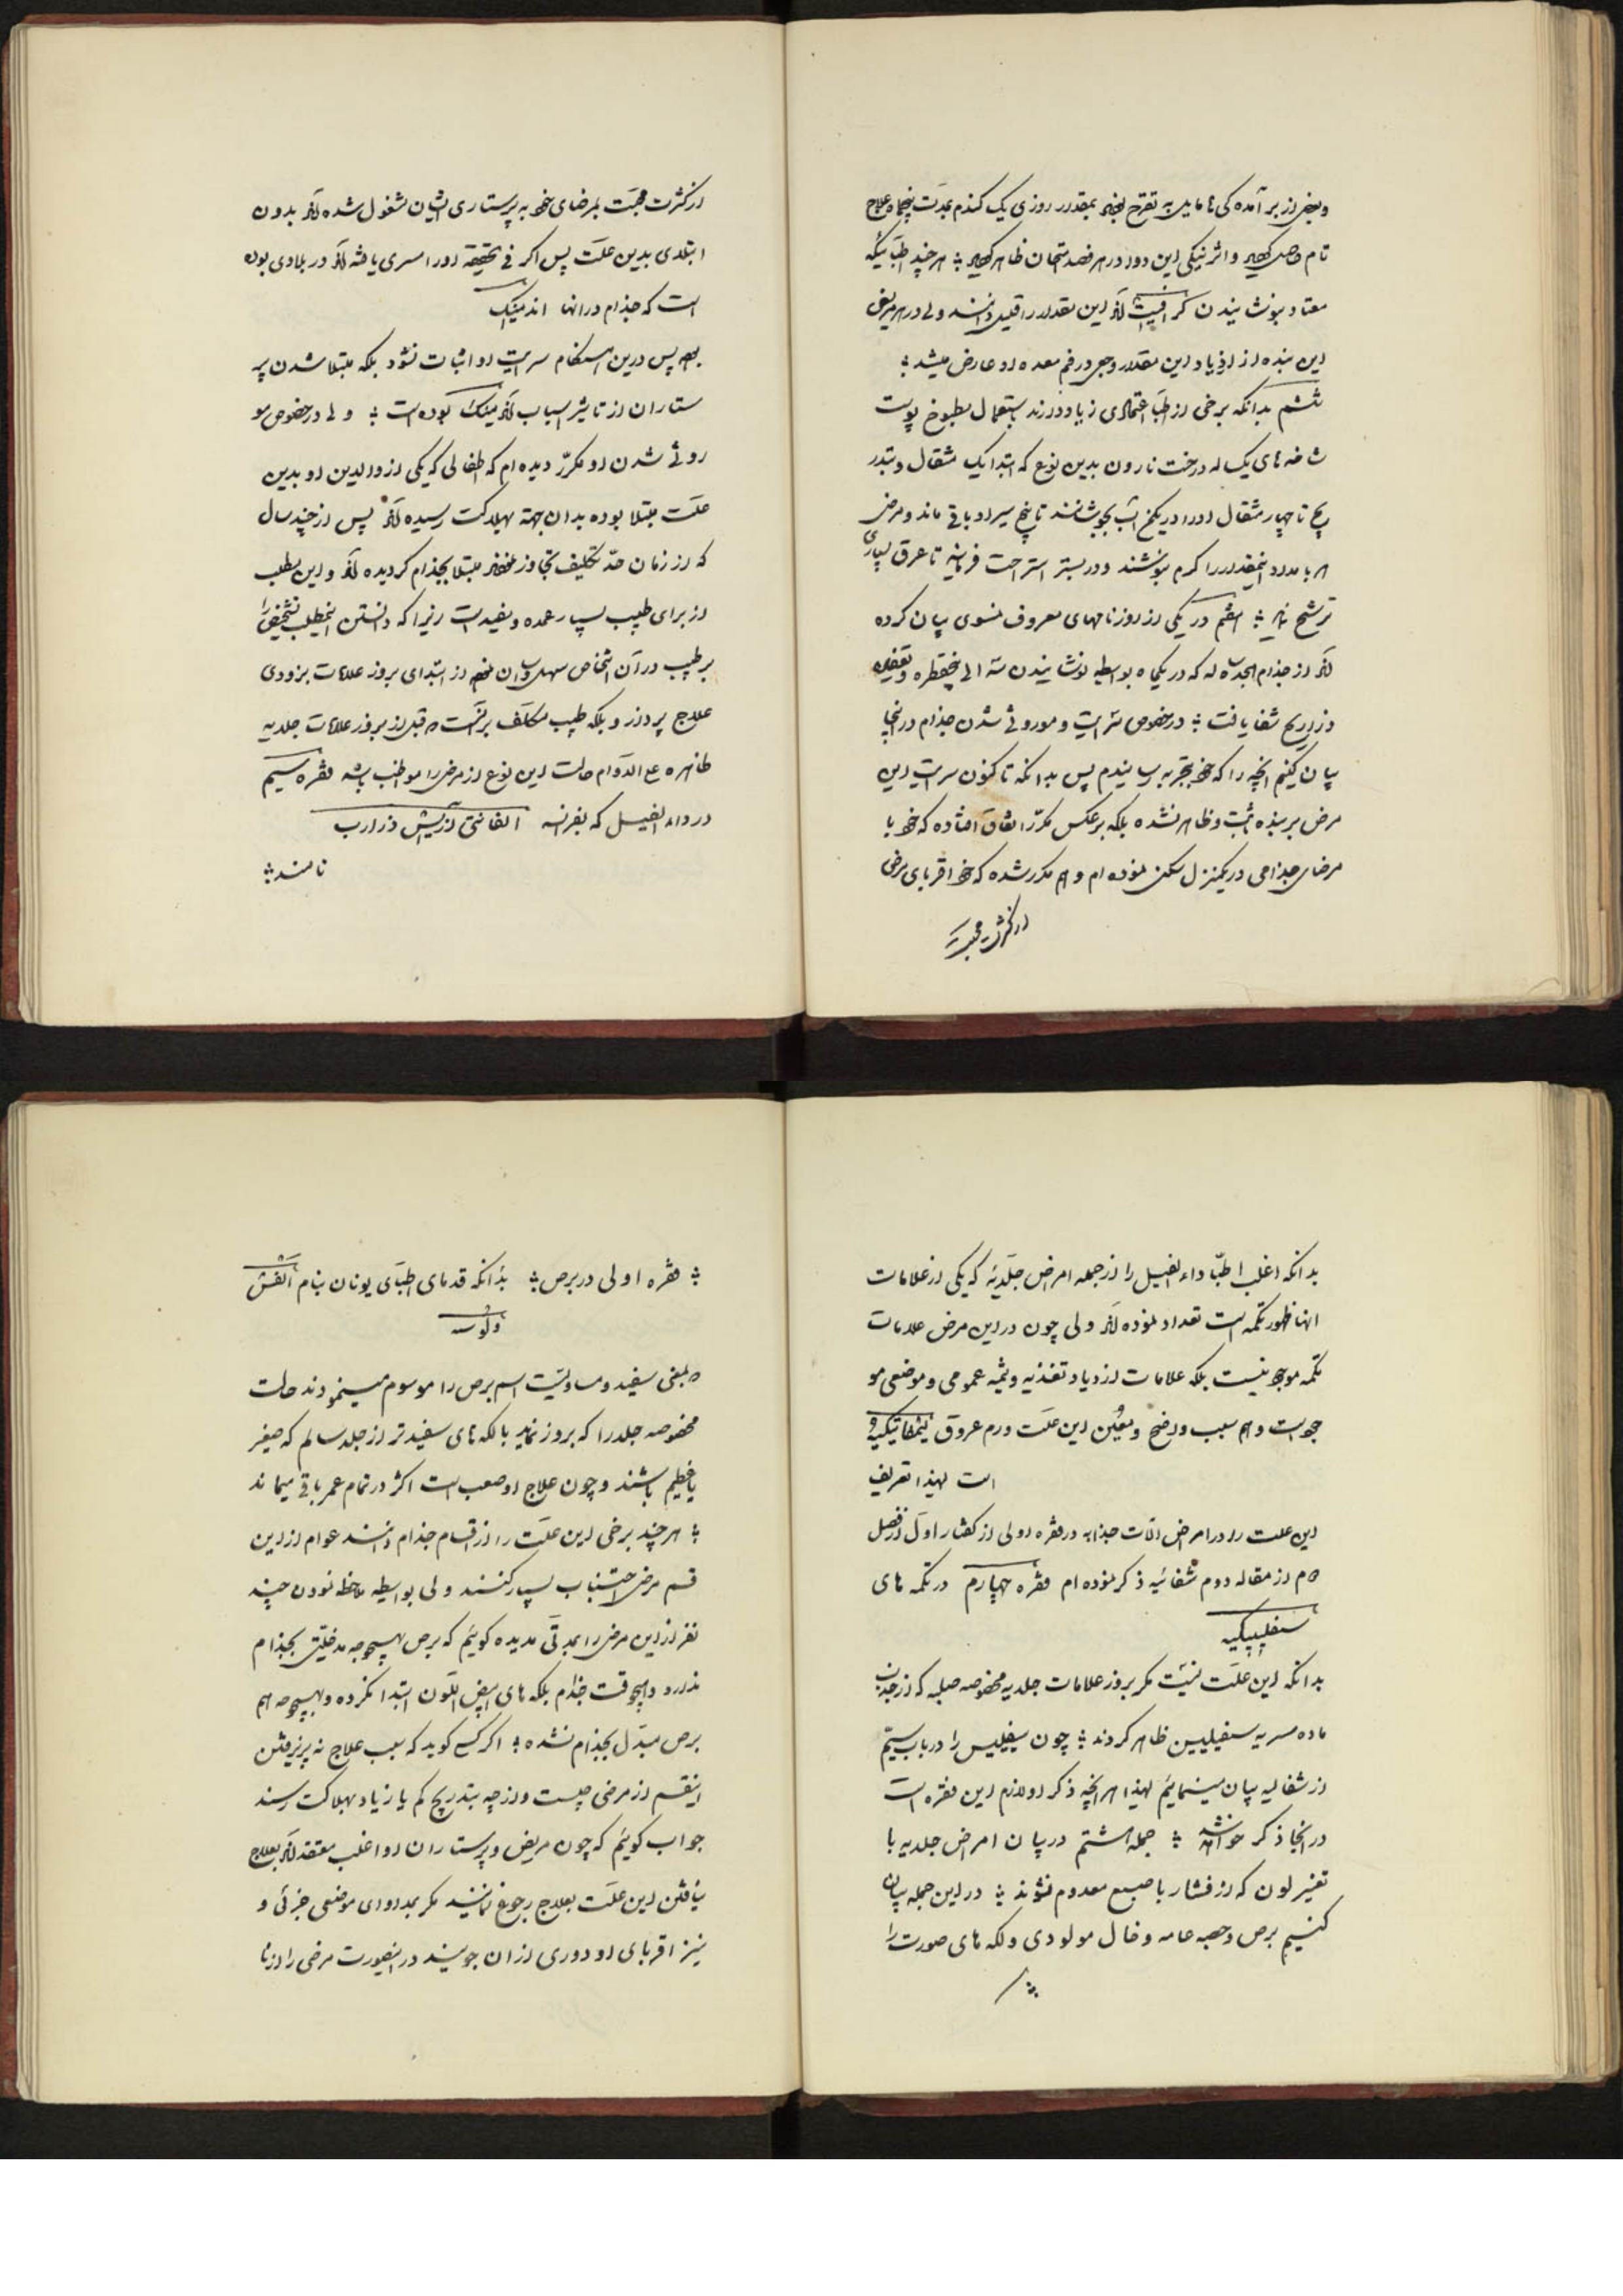 و بعضی از برآمده کی ها مایل به تقرح بمقدار روزی یک کندم بمدت پنجاه علاج
تام و اثر نیکی این دوا در هر قصد امتحان ظاهر هر چند اطبائیکه
معتاد بنوشانیدن این مقدار را قلیل دانسند ولی در هر مریض
این بنده از ازدیاد این مقدار وجعی در فم معده او عارض میشد
ششم بدانکه برخی از اطبا اعتمادی زیاد دارند باستعمال مطبوخ پوست
شاخه های یکساله درخت نارون بدین نوع که ابتدا یک مثقال و بتدر
یج تا چهار مثقال او را در یکمن آب بجوشانند تا پنج سیر او باقی ماند و مرضی
هر بامداد اینمقدار را کرم بنوشند و در بستر استراحت فرمایند تا عرق بسیاری
ترشح نماید هفتم در یکی از روزنامهای معروف نمسوی بیان کرده
اند از جذام که در یکماه بواسطه نوشانیدن سه الی پنجقطره
ذراریح شفا یافت در خصوص سرایت و موروثی شدن جذام در اینجا
بیان کنیم انچه را که خود بتجربه رسانیدم پس بدانکه تا کنون سرایت این
مرض بر بنده ثابت و ظاهر نشده بلکه بر عکس مکرّر اتفاق افتاده که خود با
مرضای جذامی در یکمنزل سکن نموده ام و هم مکرر شده که خود اقربای مرضی
از کثرت محبت
از کثرت محبت بمرضای خود به پرستاری ایشان مشغول شده اند بدون
ابتلای بدین علت پس اکر فی الحقیقه او را مسری یافته اند در بلادی بوده
است که جذام در انها اندمیک
بوده پس درین هنکام سرایت او اثبات نشود بلکه مبتلا شدن پر
ستاران از تاثیر اسباب اندمیک بوده است ولی در خصوص مو
روثی شدن او مکرّر دیده ام که اطفالی که یکی از والدین او بدین
علت مبتلا بوده بدان جهة بهلاکت رسیده اند پس از چند سال
که از زمان حدّ تکلیف تجاوز نموده مبتلا بجذام کردیده اند و این مطلب
از برای طبیب بسیار عمده و مفید است زیرا که دانستن اینمطلب تشخیص را
بر طبیب در آن اشخاص سهل و اسان نموده از ابتدای بروز علامات بزودی
علاج پردازد و بلکه طبیب مکلف بر آنست که قبل از بروز علامات جلدیه
ظاهره علی الدوام حالت این نوع از مرض را مواظب باشد فقره سیم
در داء الفیل که بفرانسه الفانتی ازیش ذز ارب
نامند
بدانکه اغلب اطبّا داء الفیل را از جمله امراض جلدیّه که یکی از علامات
انها ظهور تکمه است تعداد نموده اند ولی چون در این مرض علامات
تکمه موجود نیست بلکه علامات ازدیاد تغذیه و تنمیه عمومی و موضعی مو
جود است و هم سبب واضح و معین این علت ورم عروق لیمفاتیکیه
است لهذا تعریف
این علت را در امراض الات جذابه در فقره اولی از کفتار اول از فصل
دوم از مقاله دوم شفائیه ذکر نموده ام فقره چهارم در تکمه های
سفلیپکیه
بدانکه این علت نیست مکر بروز علامات جلدیه مخصوصه صلبه که از جذب
ماده مسریه سفیلیس ظاهر کردند چون سفیلیس را در باب سیّم
از شفائیه بیان مینمائیم لهذا هر انچه ذکر او لازم این فقره است
در انجا ذکر خواهد شد جمله هشتم در بیان امراض جلدیه با
تغییر لون که از فشار با اصبع معدوم نشوند در این جمله بیان
کنیم برص و حصبه عامه و خال مولودی و لکه های صورت را
فقره اولی در برص بدانکه قدمای اطبای یونان بنام الفش
و لوسه
که بمعنی سفید و مساویست اسم برص را موسوم مینمودند حالت
مخصوصه جلد را که بروز نماید با لکه های سفیدتر از جلد سالم که صغیر
یا عظیم باشند و چون علاج او صعب است اکثر در تمام عمر باقی میماند
هر چند برخی این علت را از اقسام جذام دانند عوام از این
قسم مرض اجتناب بسیار کنند ولی بواسطه ملاحظه نمودن چند
نفر از این مرض را بمدتی مدیده کوئیم که برص بهیچوجه مدخلیتی بجذام
ندارد و هیچوقت جذام بلکه های ابیض اللون ابتدا نکرده و بهیچوجه هم
برص مبدّل بجذام نشده اکر کسی کوید که سبب علاج نه پذیرفتن
اینقسم از مرضی چیست و از چه بتدریج کم یا زیاد بهلاکت رسند
جواب کوئیم که چون مریض و پرستاران او اغلب معتقد اند بعلاج
نیافتن این علت بعلاج رجوع نمانند مکر بمداوای موضعی جزئی و
نیز اقربای او دوری از ان جویند در اینصورت مرضی را از نا